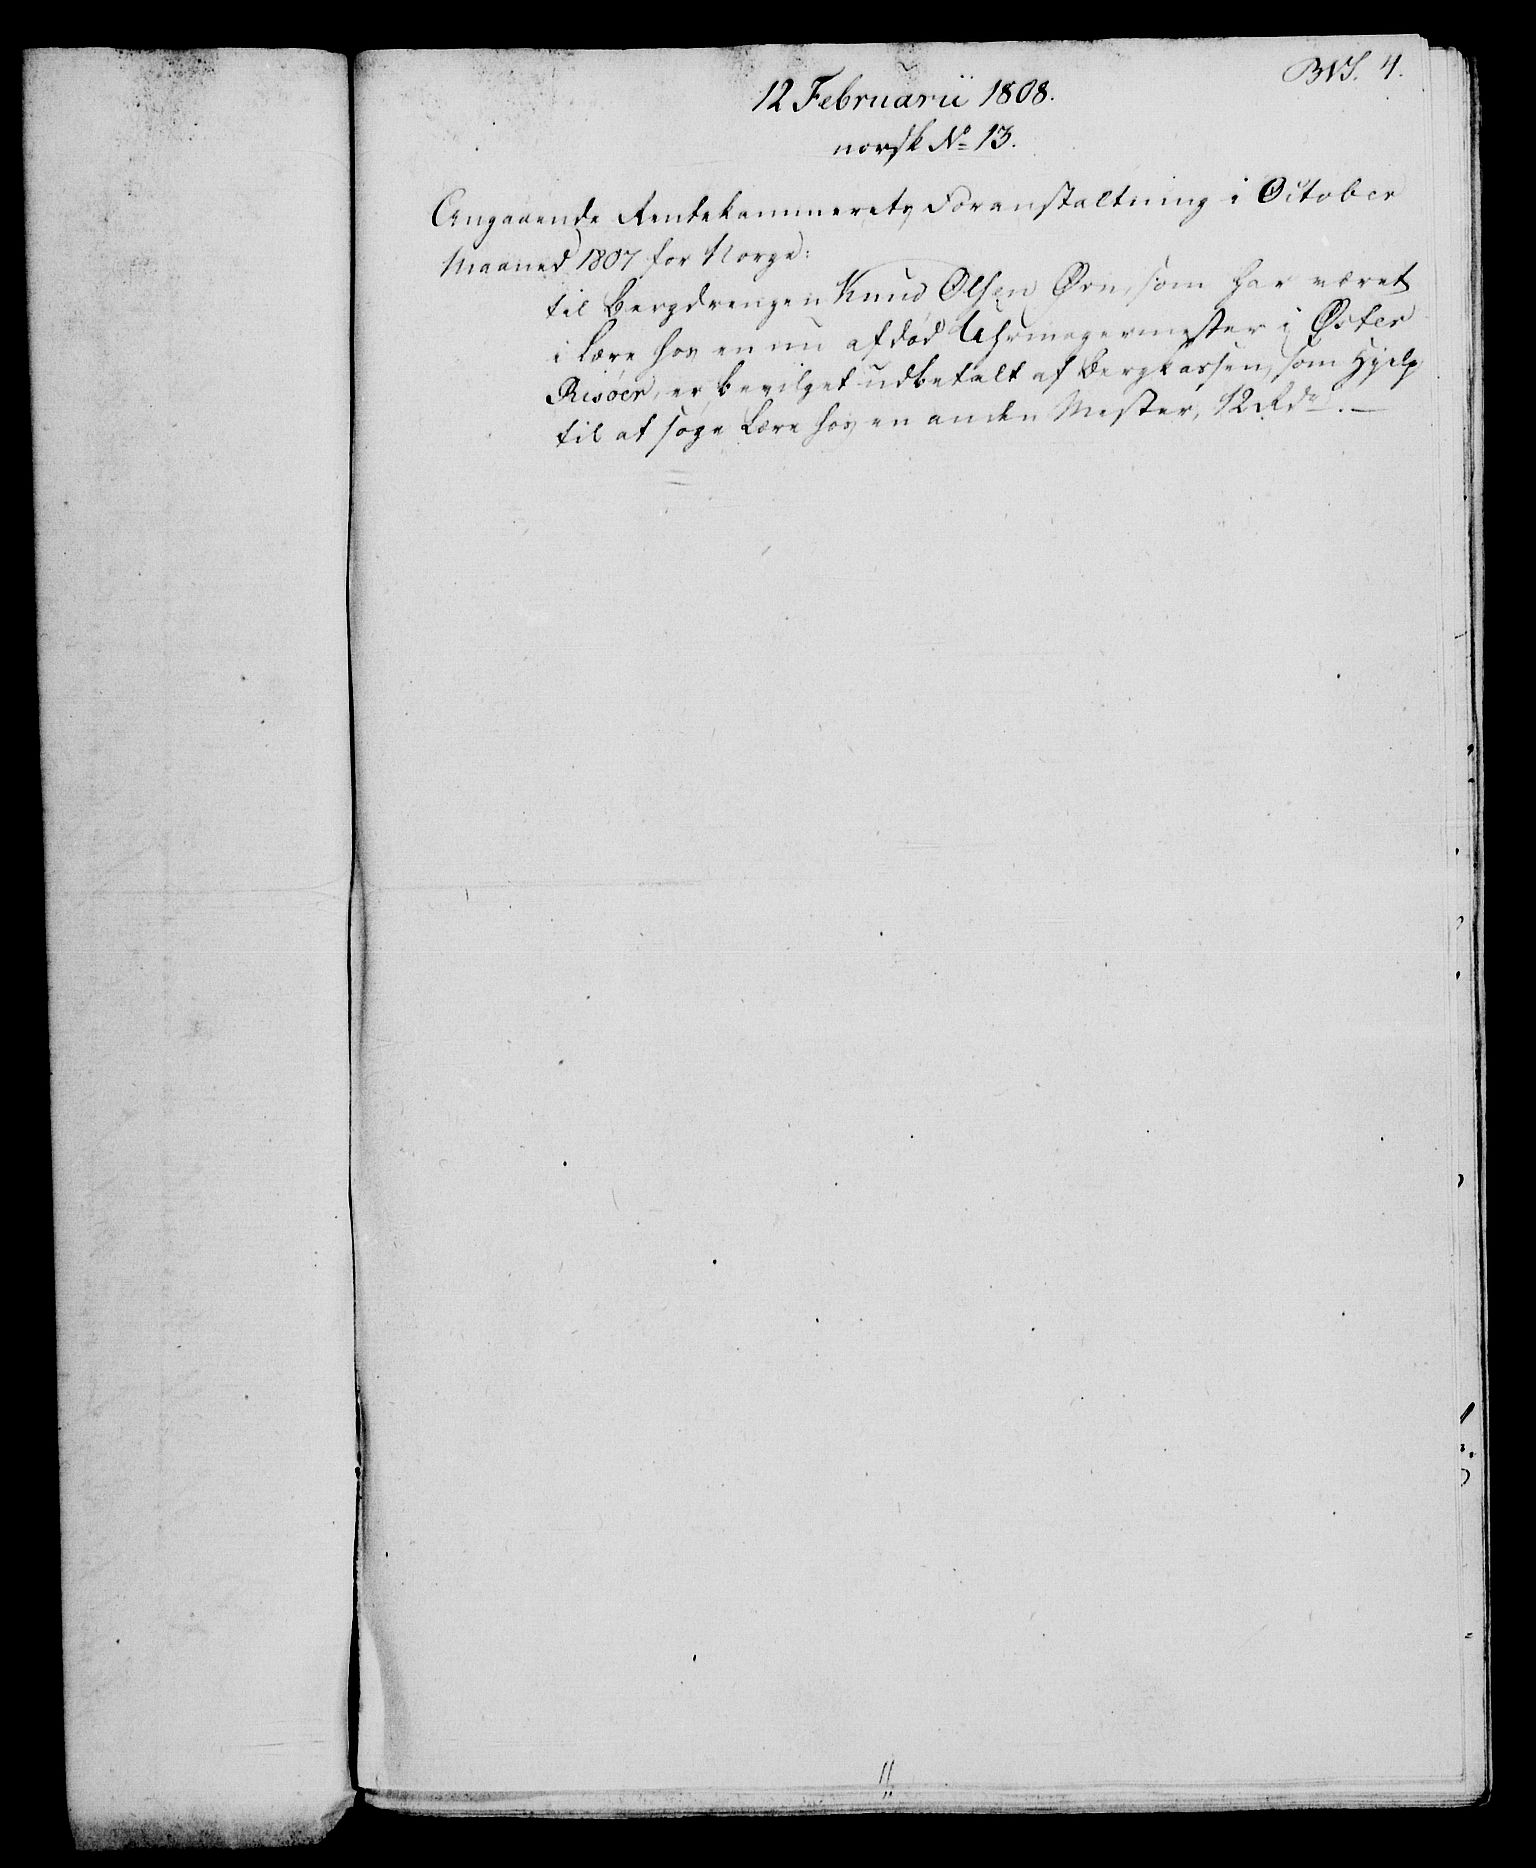 BVS. 4.
12 Februarii 1808.
norsk No 13.
Angaaende Rentekammerets Foranstaltning i October
Maaned 1807 for Norge:
til Bergdrengen Knud Olsen Örn, som har været
i Lære hos en nu afdöd Uhrmagermester i Öster
Risöer, er bevilget udbetalt af Bergkassen, som Hjelp
til at söge Lære hos en anden Mester, 12 Rdr. —